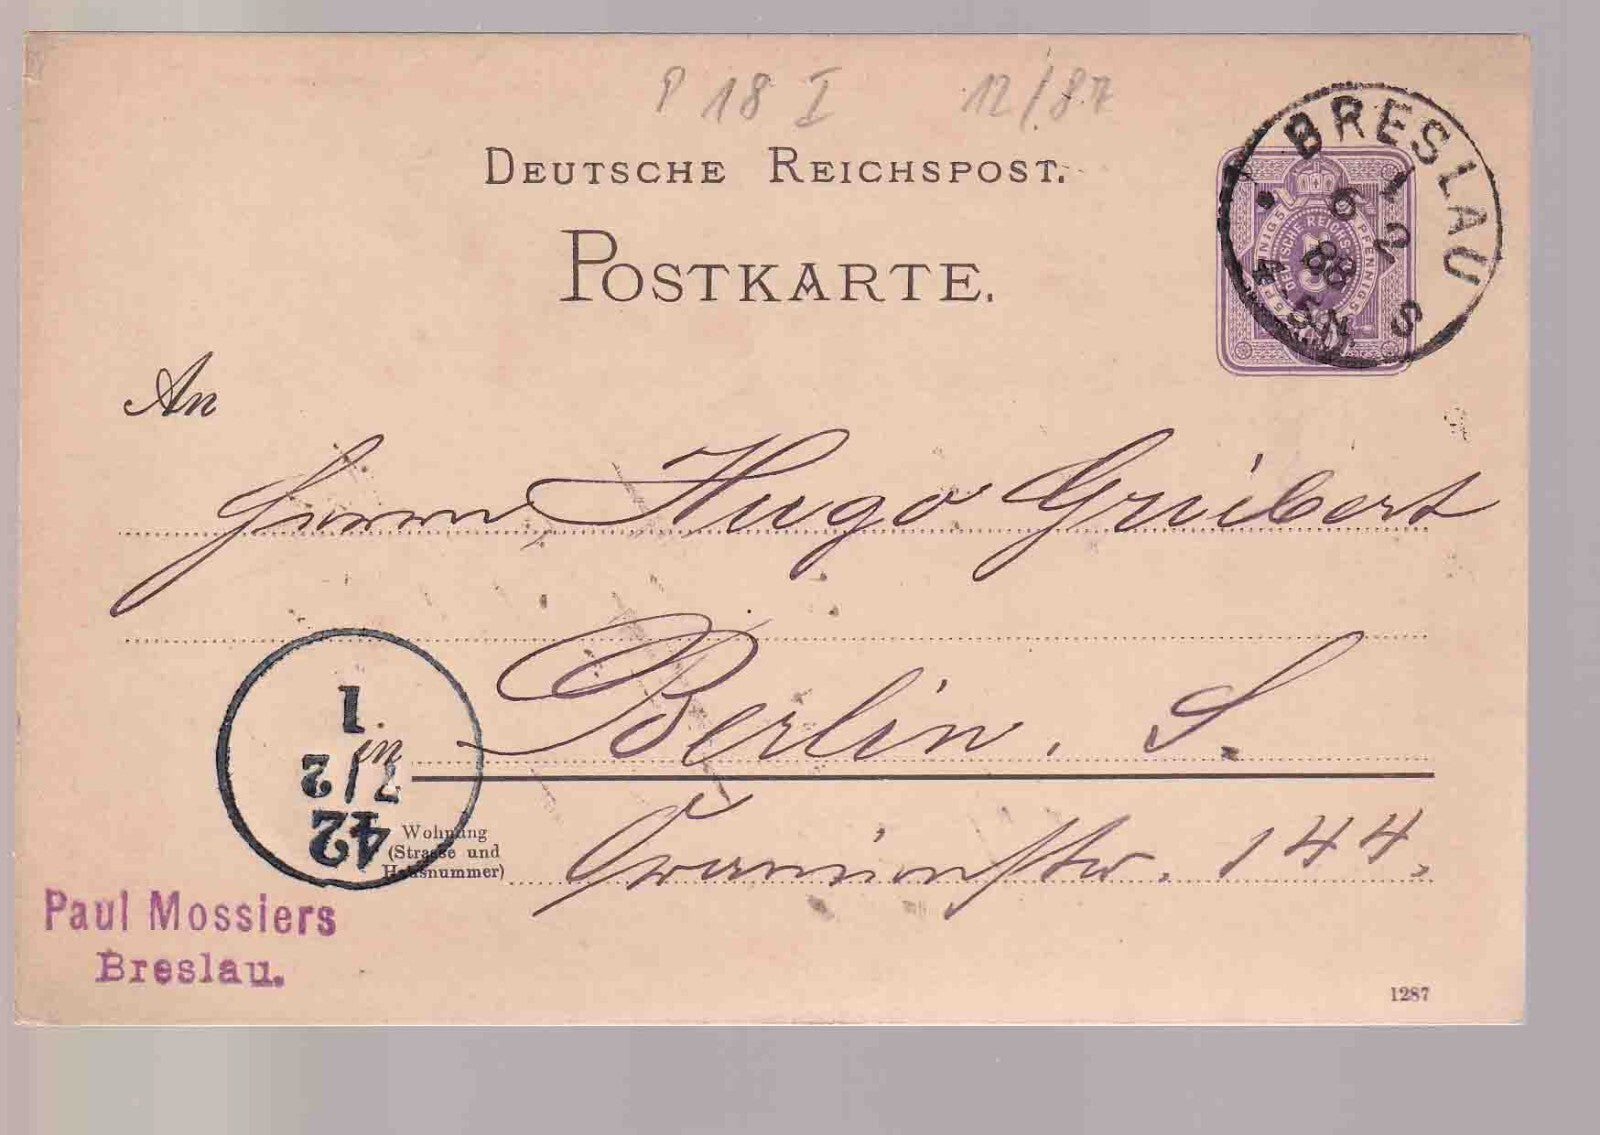 P 18 I 12/87
DEUTSCHE REICHSPOST.
POSTKARTE.
BRESLAU
1 S
6 2
88
4-5N
5 PFENNIG 5 PFENNIG
DEUTSCHE REICHS-POST
An
Herrn Hugo Gruibert
in Berlin. S.
Wohnung
(Strasse und
Hausnummer) Oranienstr. 144.
42
7/2
1
Paul Mossiers
Breslau.
1287